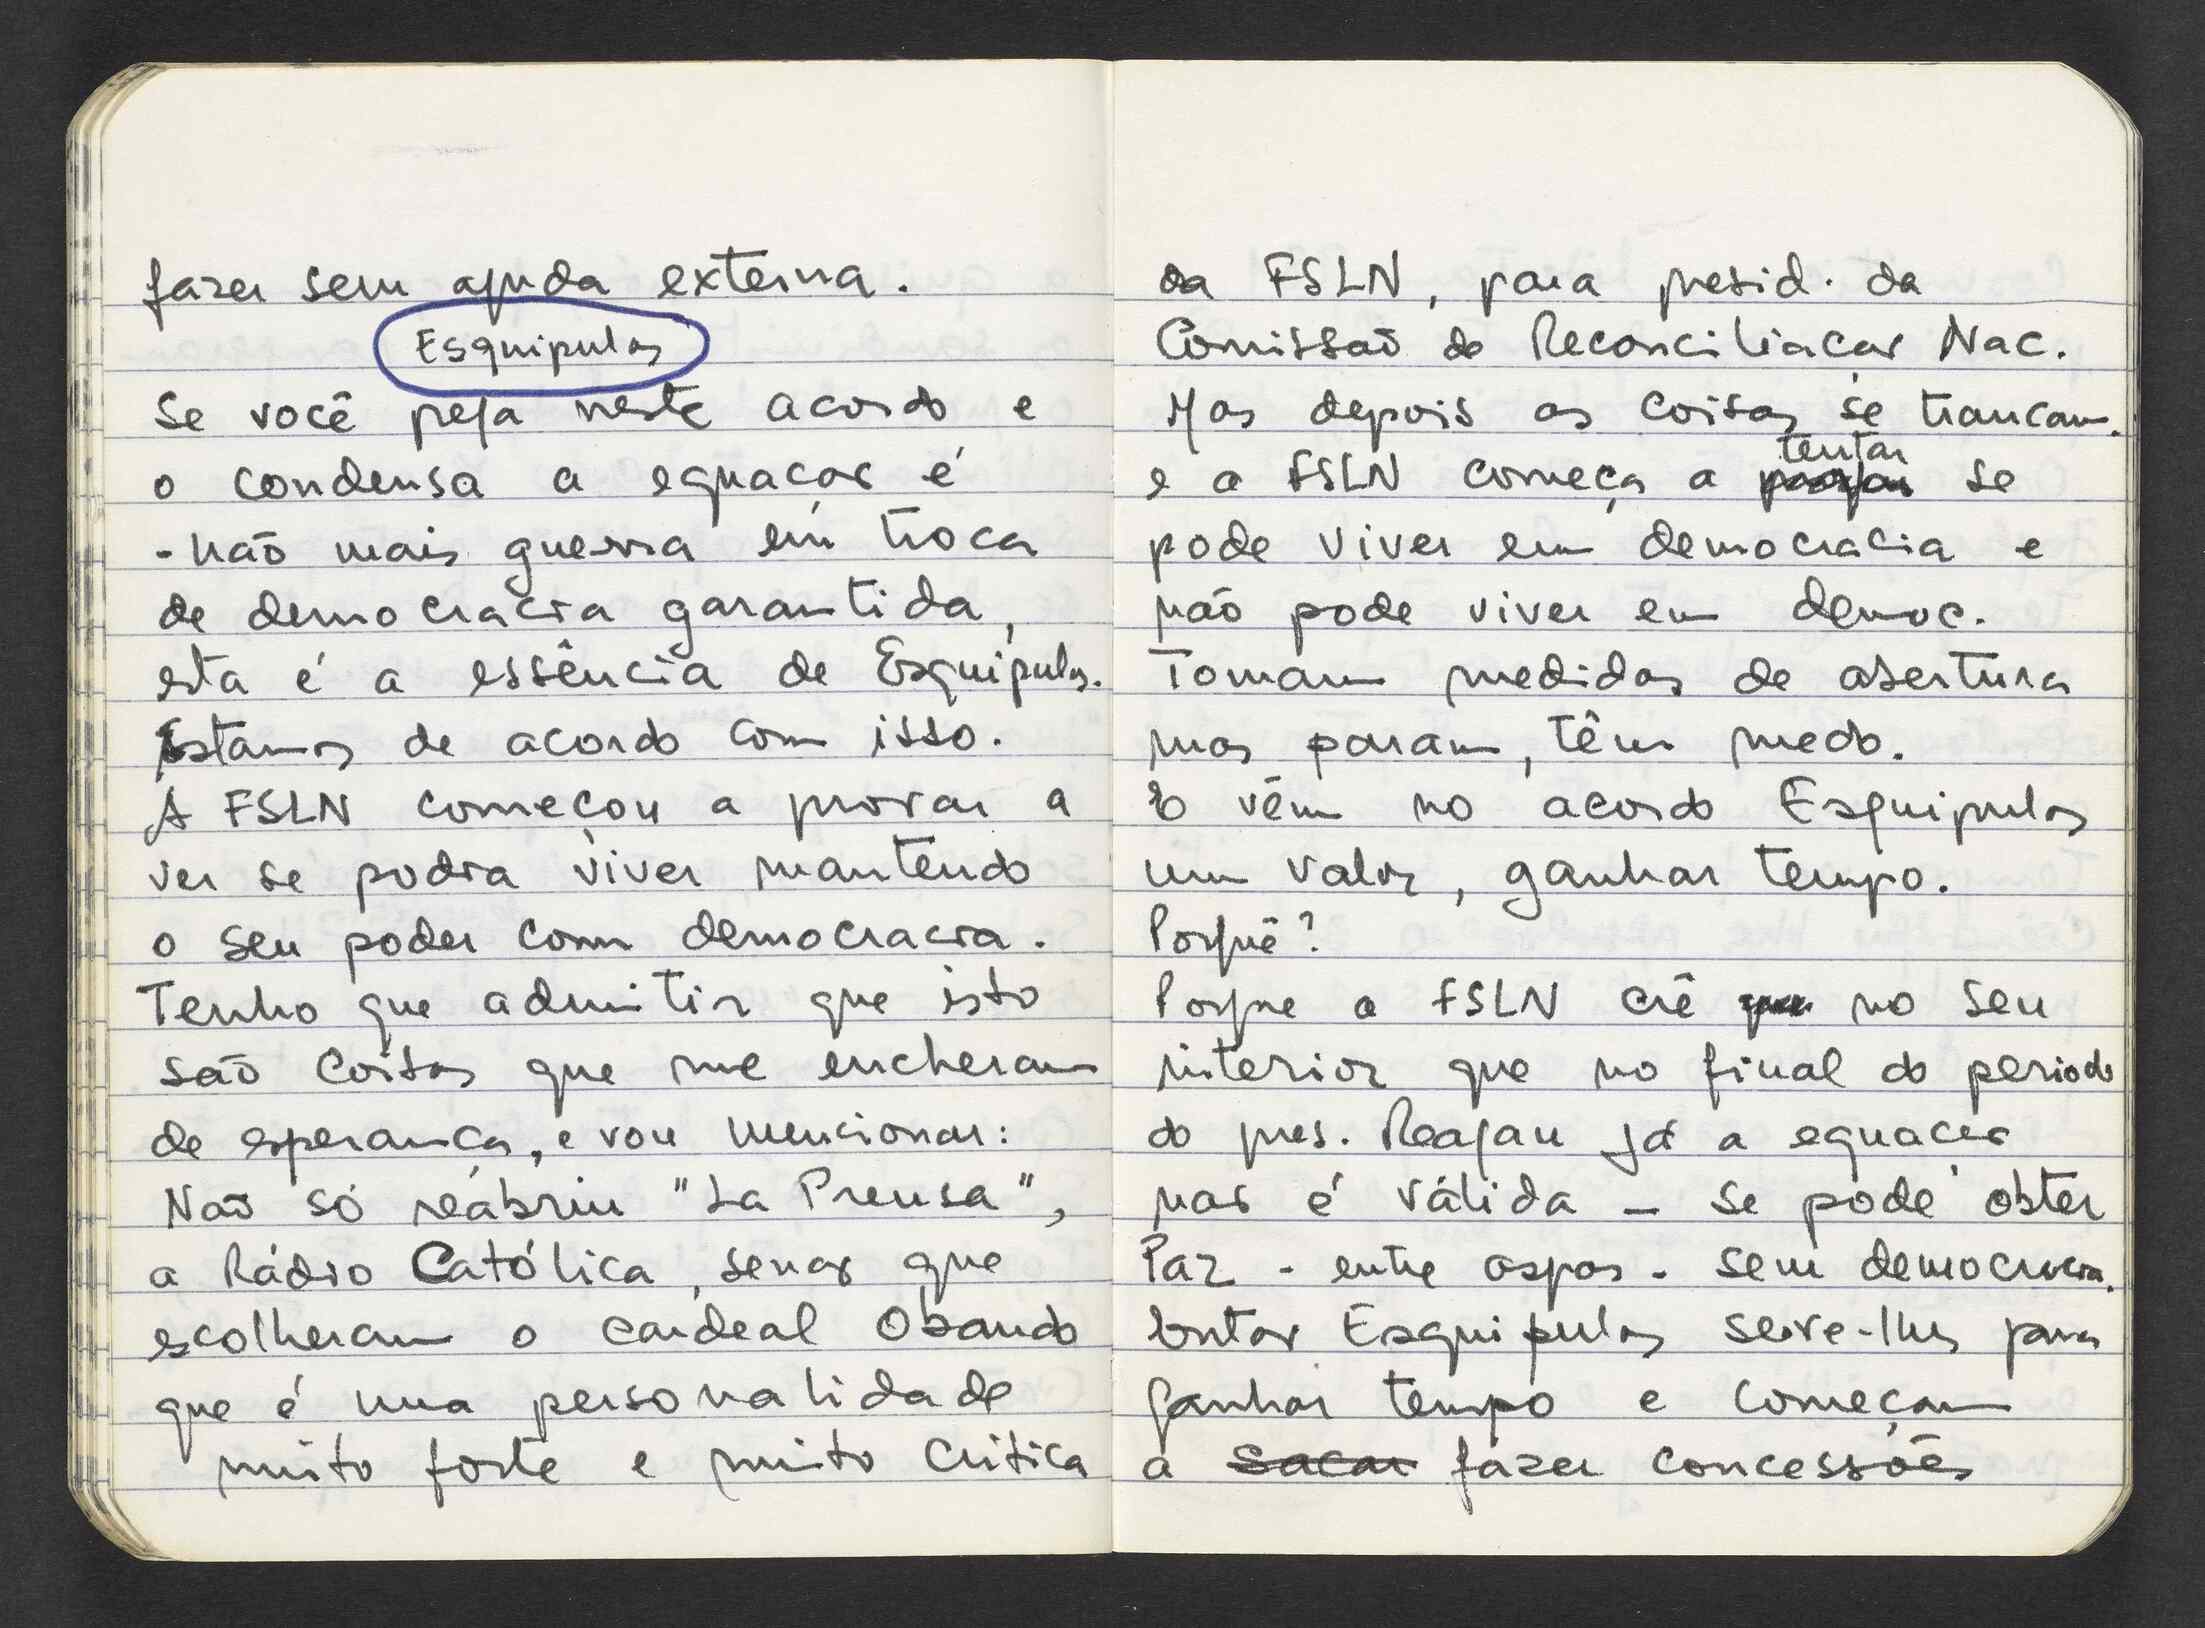 fazer sem ajuda externa.
Esquipulas
Se você pega neste acordo e
o condensa a equação é
- não mais guerra em troca
de democracia garantida,
esta é a essência de Esquipulas.
Estamos de acordo com isso.
A FSLN começou a provar a
ver se podia viver mantendo
o seu poder com democracia.
Tenho que admitir que isto
são coisas que me encheram
de esperança, e vou mencionar:
Não só reabriu "La Prensa",
a Rádio Católica, senão que
escolheram o cardeal Obando
que é uma personalidade
muito forte e muito crítica
da FSLN, para presid. da
Comissão de Reconciliação Nac.
Mas depois as coisas se trancam.
tentar
e a FSLN começa a se
pode viver em democracia e
não pode viver em democ.
Tomam medidas de abertura
mas param, têm medo.
E vêm no acordo Esquipulas
um valor, ganhar tempo.
Porquê?
Porque a FSLN crê que no seu
interior que no final do periodo
do pres. Reagan já a equação
não é válida - se pode obter
Paz - entre aspas - sem democracia.
Então Esquipulas serve-lhes para
ganhar tempo e começam
a sacar fazer concessões